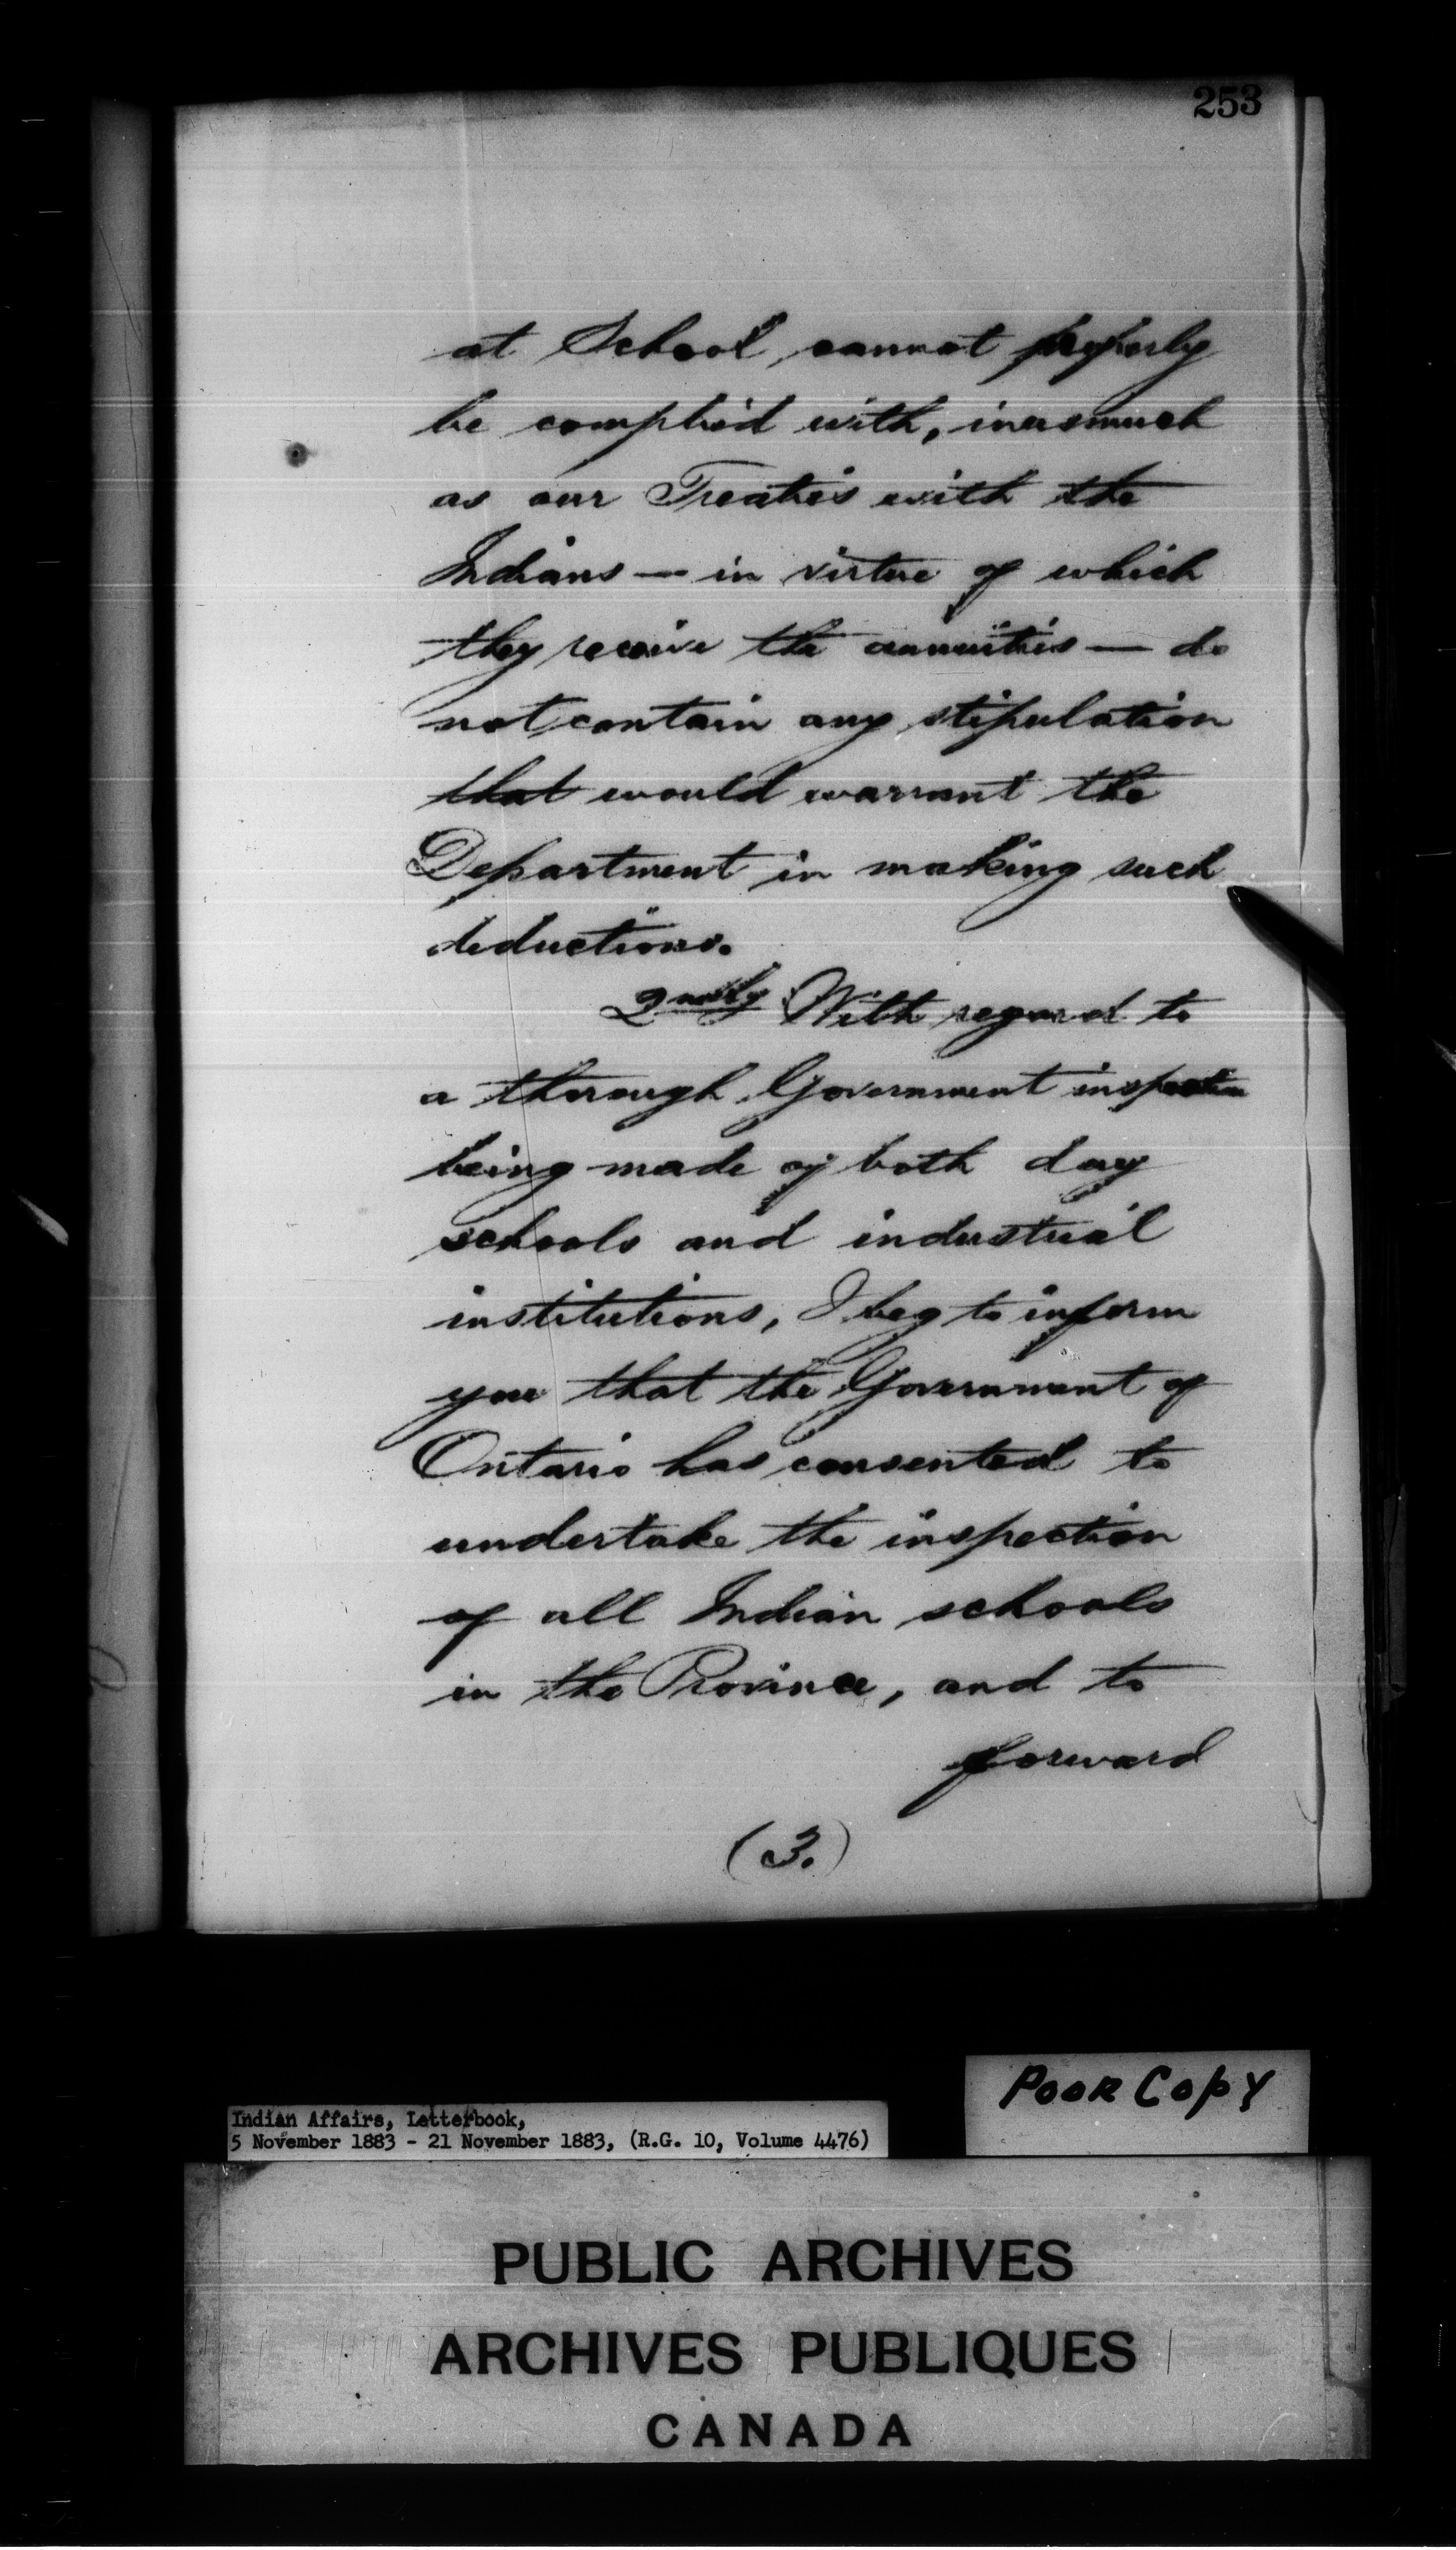 253
at School cannot properly
be complied with, inasmuch
as our Treaties with the
Indians — in virtue of which
they receive the annuities — do
not contain any stipulation
that would warrant the
Department in making such
deductions.
2ndly With regard to
a thorough Government inspection
being made of both day
schools and industrial
institutions, I beg to inform
you that the Government of
Ontario has consented to
undertake the inspection
of all Indian schools
in the Province, and to
forward
(3.)
Poor Copy
Indian Affairs, Letterbook,
5 November 1883 - 21 November 1883, (R.G. 10, Volume 4476)
PUBLIC ARCHIVES
ARCHIVES PUBLIQUES
CANADA